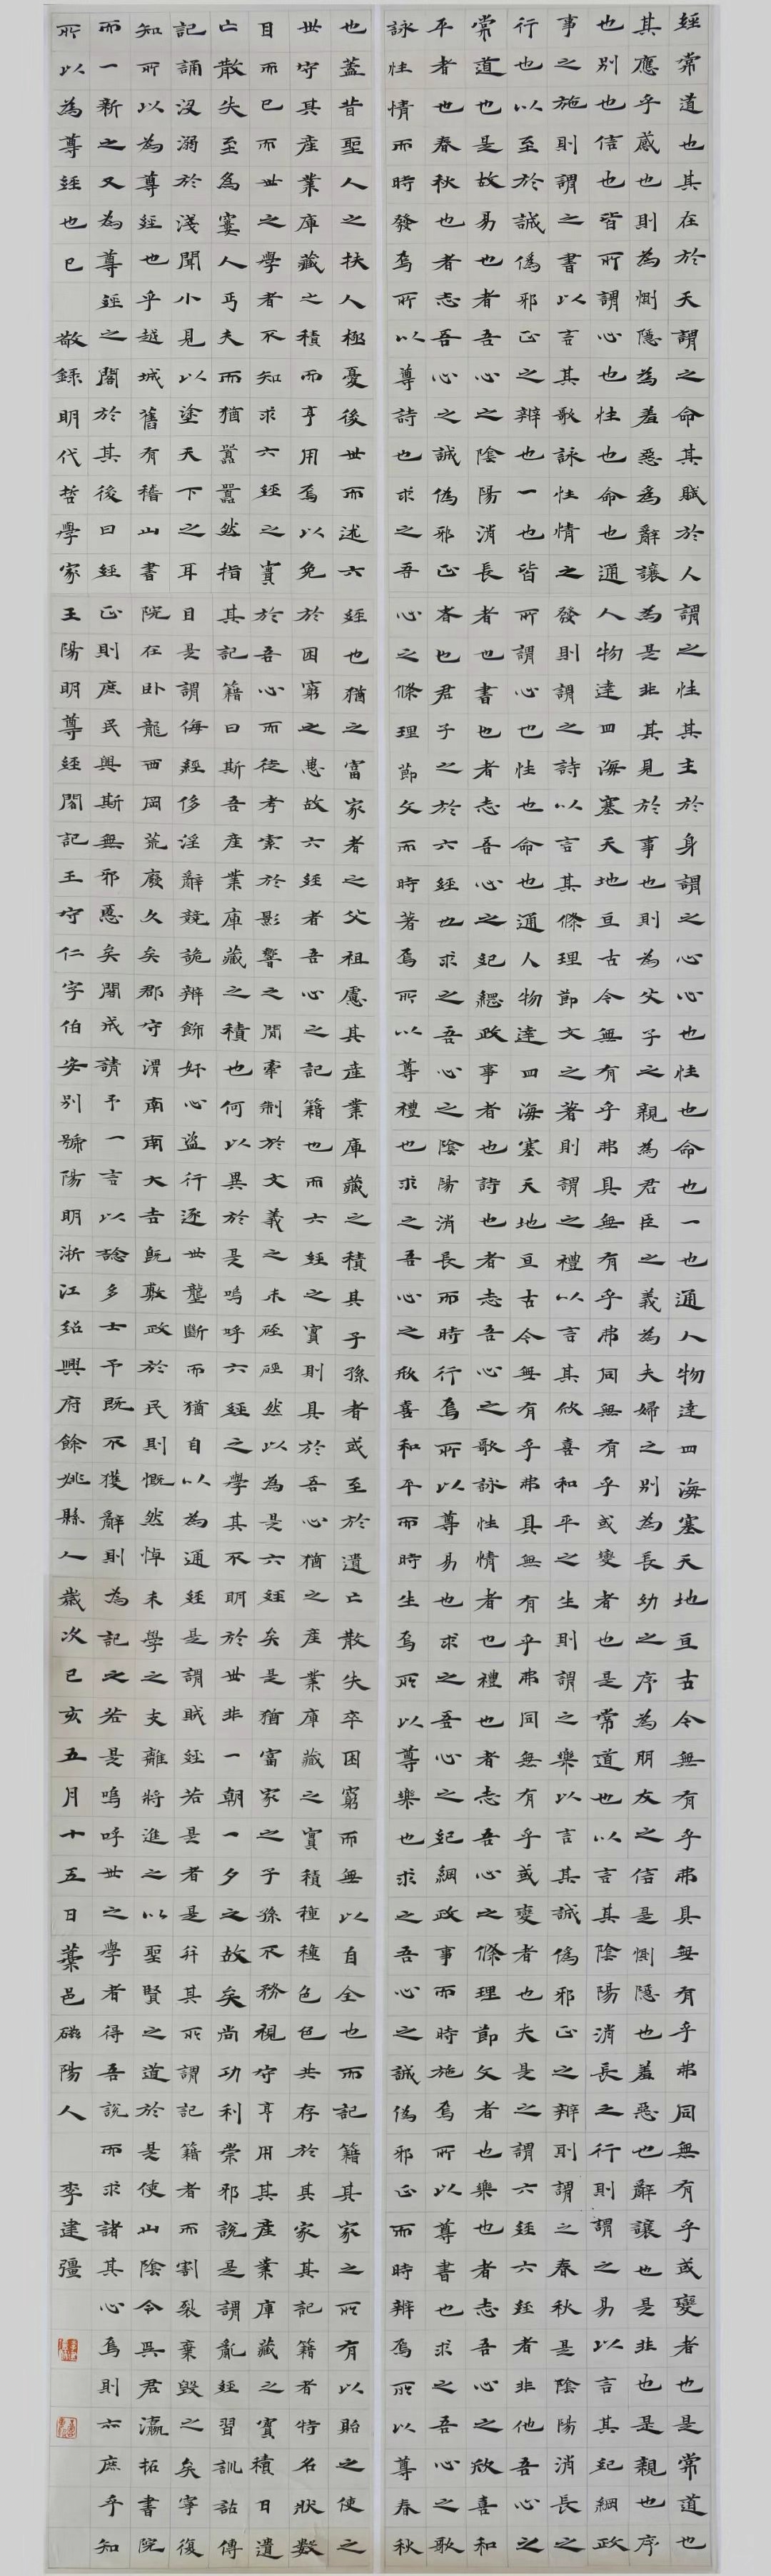 經常道也其在於天謂之命其賦於人謂之性其主於身謂之心心也性也命也一也通人物達四海塞天地亘古今無有乎弗具無有乎弗同無有乎或變者也是常道也
其應乎感也則為惻隱為羞惡為辭讓為是非其見於事也則為父子之親為君臣之義為夫婦之別為長幼之序為朋友之信是惻隱也羞惡也辭讓也是非也是親也序
也別也信也皆所謂心也性也命也通人物達四海塞天地亘古今無有乎弗具無有乎弗同無有乎或變者也是常道也以言其陰陽消長之行則謂之易以言其紀綱政
事之施則謂之書以言其歌詠性情之發則謂之詩以言其條理節文之著則謂之禮以言其欣喜和平之生則謂之樂以言其誠偽邪正之辨則謂之春秋是陰陽消長之
行也以至於誠偽邪正之辨也一也皆所謂心也性也命也通人物達四海塞天地亘古今無有乎弗具無有乎弗同無有乎或變者也夫是之謂六經六經者非他吾心之
常道也是故易也者吾心之陰陽消長者也書也者志吾心之紀綱政事者也詩也者志吾心之歌詠性情者也禮也者志吾心之條理節文者也樂也者志吾心之欣喜和
平者也春秋也者志吾心之誠偽邪正者也君子之於六經也求之吾心之陰陽消長而時行焉所以尊易也求之吾心之紀綱政事而時施焉所以尊書也求之吾心之歌
詠性情而時發焉所以尊詩也求之吾心之條理節文而時著焉所以尊禮也求之吾心之欣喜和平而時生焉所以尊樂也求之吾心之誠偽邪正而時辨焉所以尊春秋
也蓋昔聖人之扶人極憂後世而述六經也猶之富家者之父祖慮其產業庫藏之積其子孫者或至於遺亡散失卒困窮而無以自全也而記籍其家之所有以貽之使之
世守其產業庫藏之積而享用焉以免於困窮之患故六經者吾心之記籍也而六經之實則具於吾心猶之產業庫藏之實積種種色色共存於其家其記籍者特名狀數
目而已而世之學者不知求六經之實於吾心而徒考索於影響之間牽制於文義之末硜硜然以為是六經矣是猶富家之子孫不務視守享用其產業庫藏之實積日遺
亡散失至為窶人丐夫而猶囂囂然指其記籍曰斯吾產業庫藏之積也何以異於是嗚呼六經之學其不明於世非一朝一夕之故矣尚功利崇邪說是謂亂經習訓詁傳
記誦沒溺於淺聞小見以塗天下之耳目是謂侮經侈淫辭競詭辨飾奸心盜行逐世壟斷而猶自以為通經是謂賊經若是者是并其所謂記籍者而割裂棄毀之矣寧復
知所以為尊經也乎越城舊有稽山書院在臥龍西岡荒廢久矣郡守渭南南大吉既敷政於民則慨然悼末學之支離將進之以聖賢之道於是使山陰令吳君瀛拓書院
而一新之又為尊經之閣於其後曰經正則庶民興斯無邪慝矣閣成請予一言以諗多士予既不獲辭則為記之若是嗚呼世之學者得吾說而求諸其心焉則亦庶乎知
所以為尊經也已 敬錄明代哲學家王陽明尊經閣記王守仁字伯安別號陽明浙江紹興府餘姚縣人歲次己亥五月十五日藁邑磁陽人 李建彊